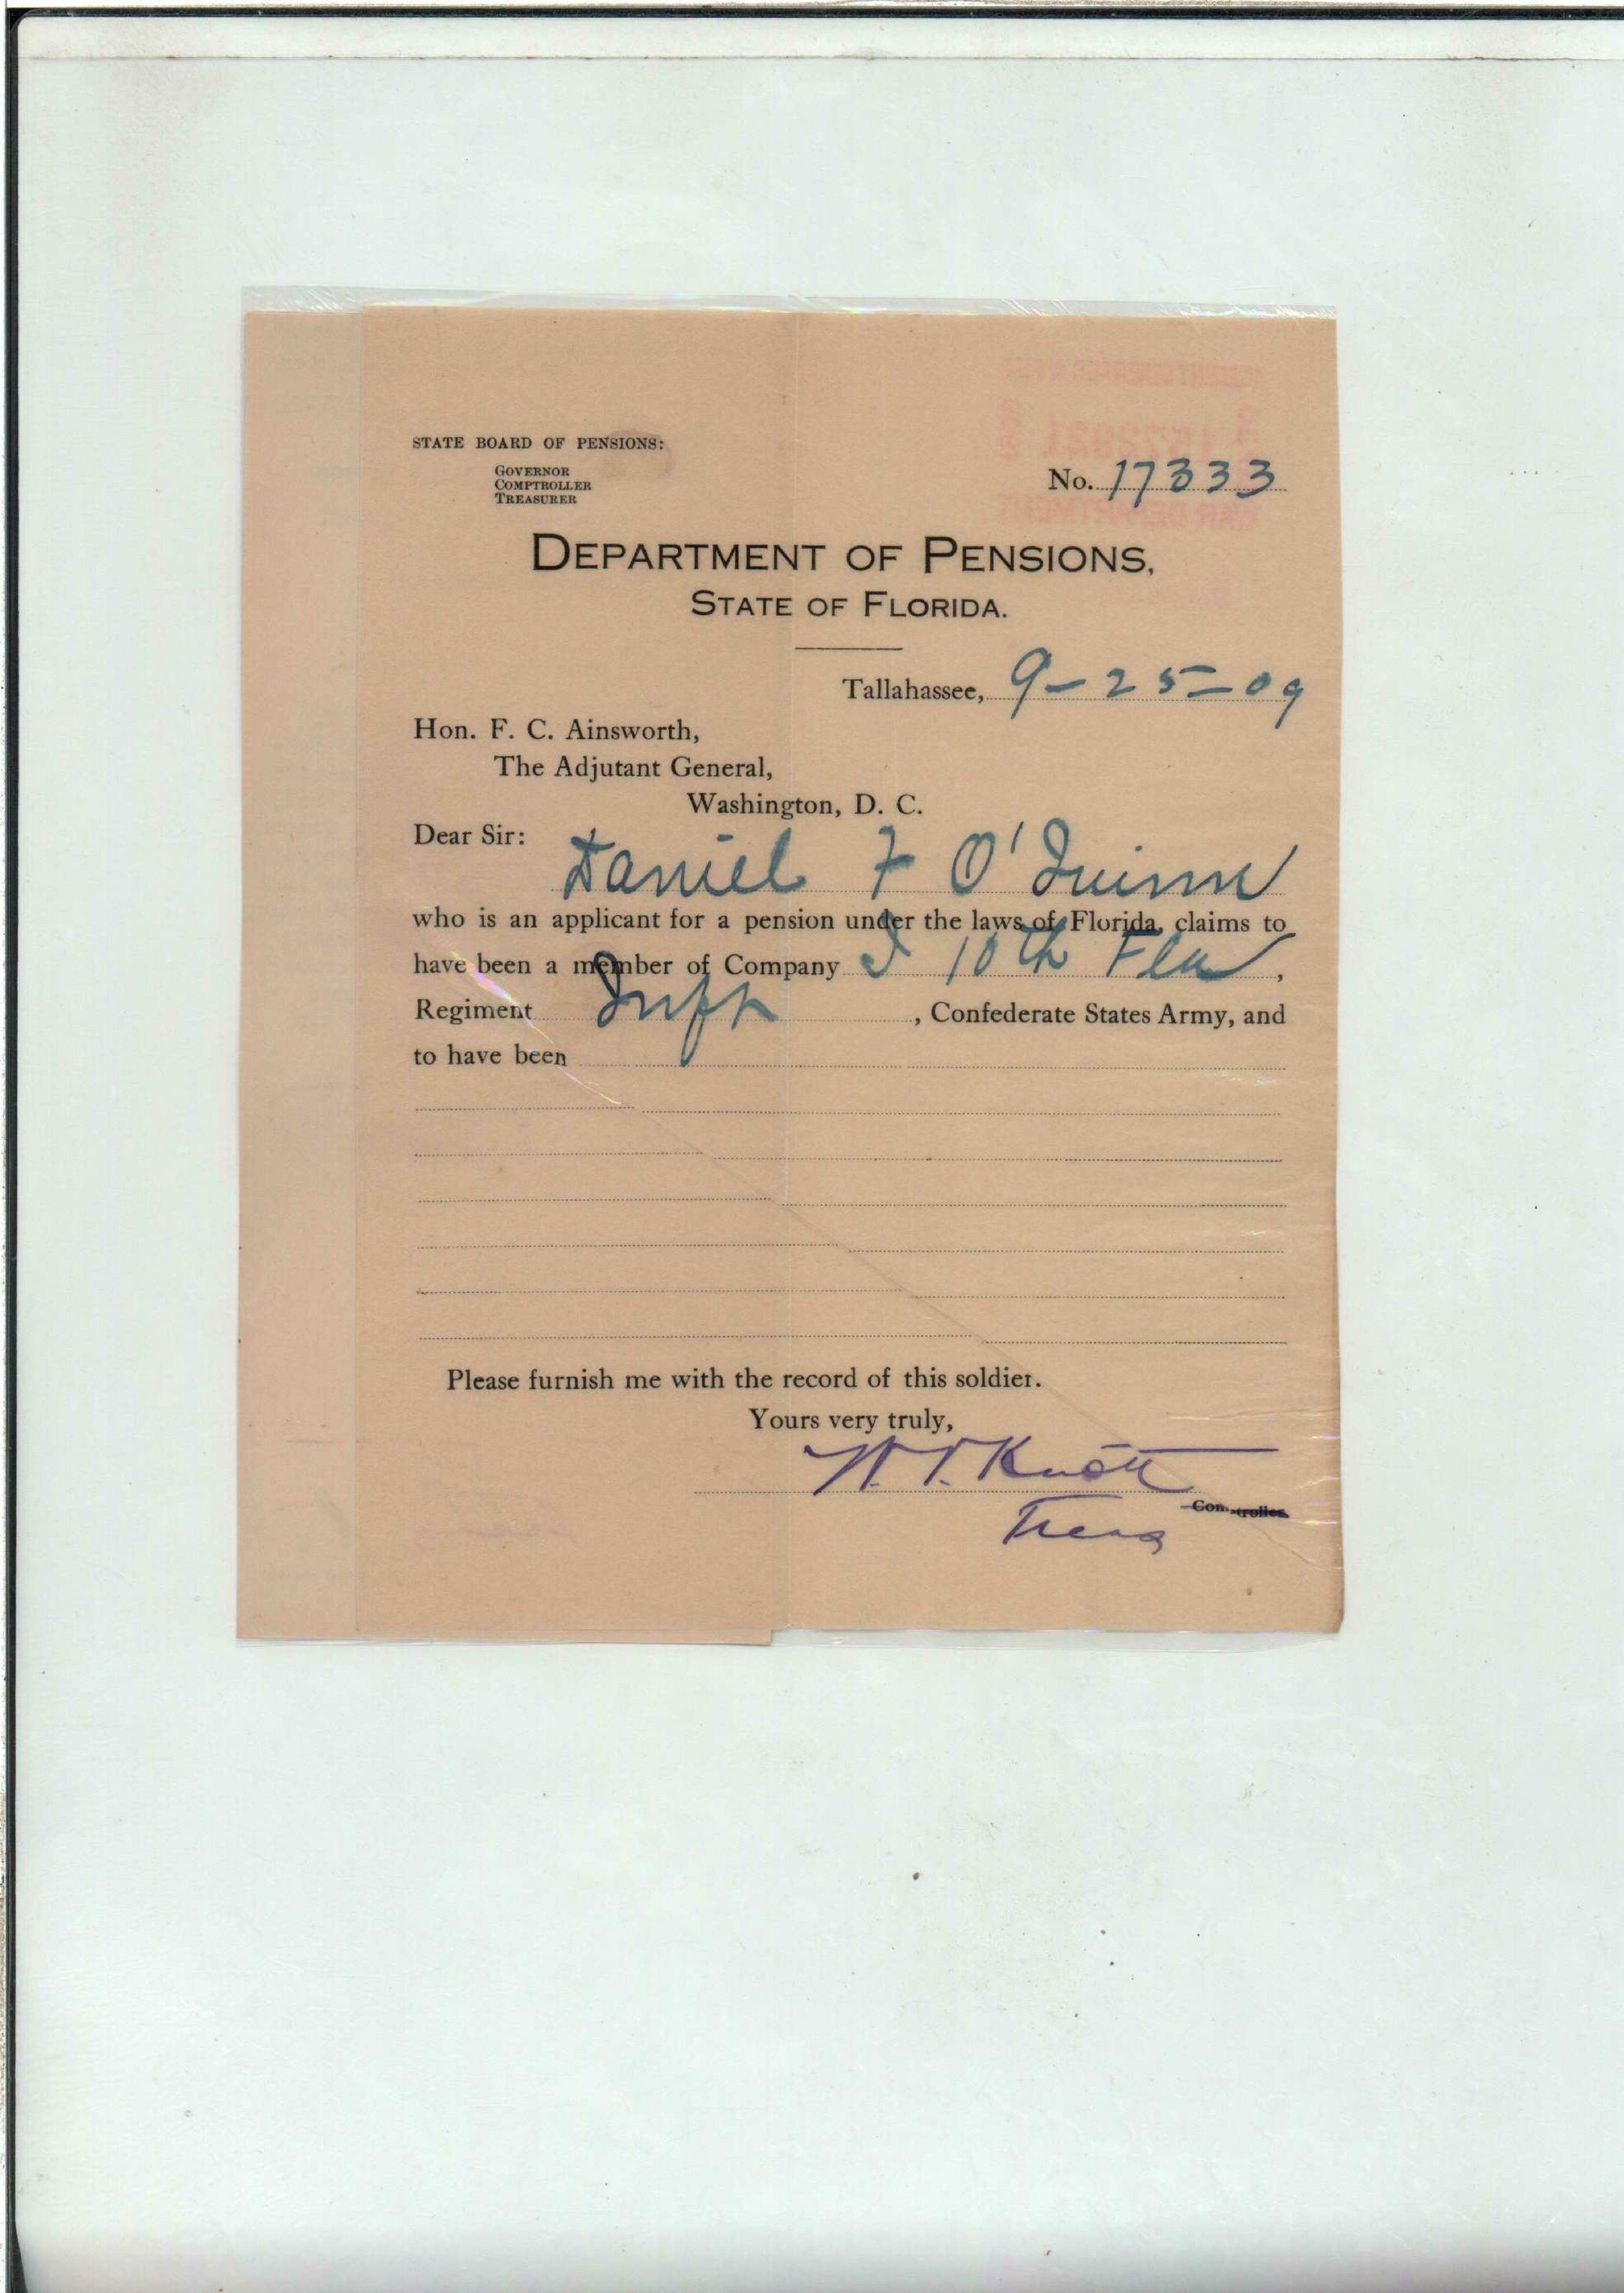 STATE BOARD OF PENSIONS:
GOVERNOR
COMPTROLLER
TREASURER
No. 17333
DEPARTMENT OF PENSIONS,
STATE OF FLORIDA.
Tallahassee, 9-25-09
Hon. F. C. Ainsworth,
The Adjutant General,
Washington, D. C.
Dear Sir:
Daniel F O'Quinn
who is an applicant for a pension under the laws of Florida, claims to
have been a member of Company I 10th Fla,
Regiment Inft, Confederate States Army, and
to have been
Please furnish me with the record of this soldier.
Yours very truly,
W. V. Knott
Comptroller.
Treas